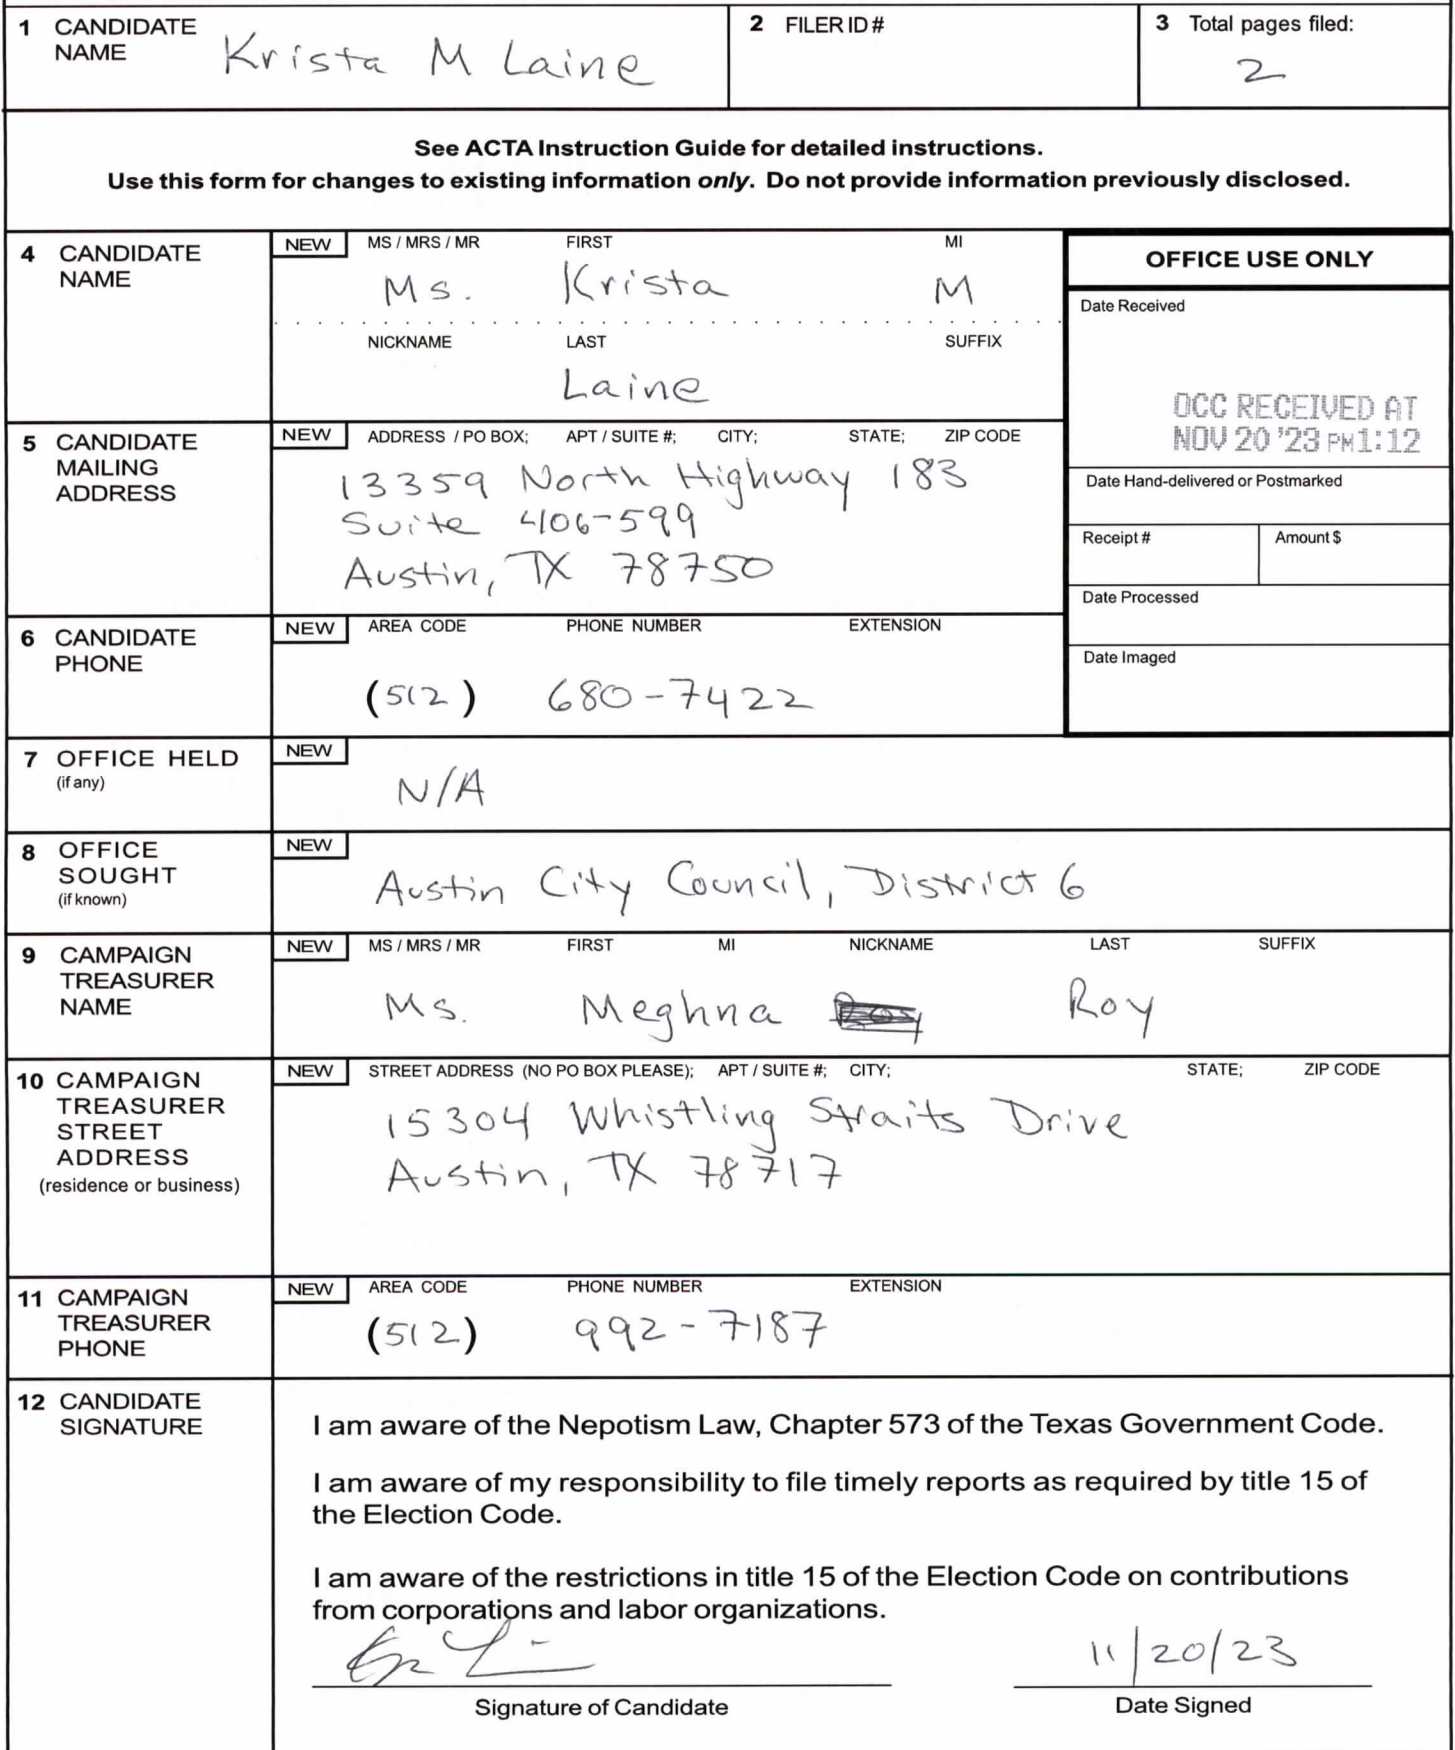 1 CANDIDATE NAME Krista M Laine
2 FILER ID #
3 Total pages filed:
2
See ACTA Instruction Guide for detailed instructions.
Use this form for changes to existing information only. Do not provide information previously disclosed.
4 CANDIDATE NAME
NEW MS / MRS / MR FIRST MI
Ms. Krista M
NICKNAME LAST SUFFIX
Laine
OFFICE USE ONLY
Date Received
OCC RECEIVED AT
NOV 20 '23 PM 1:12
Date Hand-delivered or Postmarked
Receipt # Amount $
Date Processed
Date Imaged
5 CANDIDATE MAILING ADDRESS
NEW ADDRESS / PO BOX; APT / SUITE #; CITY; STATE; ZIP CODE
13359 North Highway 183
Suite 406-599
Austin, TX 78750
6 CANDIDATE PHONE
NEW AREA CODE PHONE NUMBER EXTENSION
(512) 680-7422
7 OFFICE HELD (if any)
NEW
N/A
8 OFFICE SOUGHT (if known)
NEW
Austin City Council, District 6
9 CAMPAIGN TREASURER NAME
NEW MS / MRS / MR FIRST MI NICKNAME LAST SUFFIX
Ms. Meghna Roy
10 CAMPAIGN TREASURER STREET ADDRESS (residence or business)
NEW STREET ADDRESS (NO PO BOX PLEASE); APT / SUITE #; CITY; STATE; ZIP CODE
15304 Whistling Straits Drive
Austin, TX 78717
11 CAMPAIGN TREASURER PHONE
NEW AREA CODE PHONE NUMBER EXTENSION
(512) 992-7187
12 CANDIDATE SIGNATURE
I am aware of the Nepotism Law, Chapter 573 of the Texas Government Code.
I am aware of my responsibility to file timely reports as required by title 15 of
the Election Code.
I am aware of the restrictions in title 15 of the Election Code on contributions
from corporations and labor organizations.
11/20/23
Signature of Candidate Date Signed